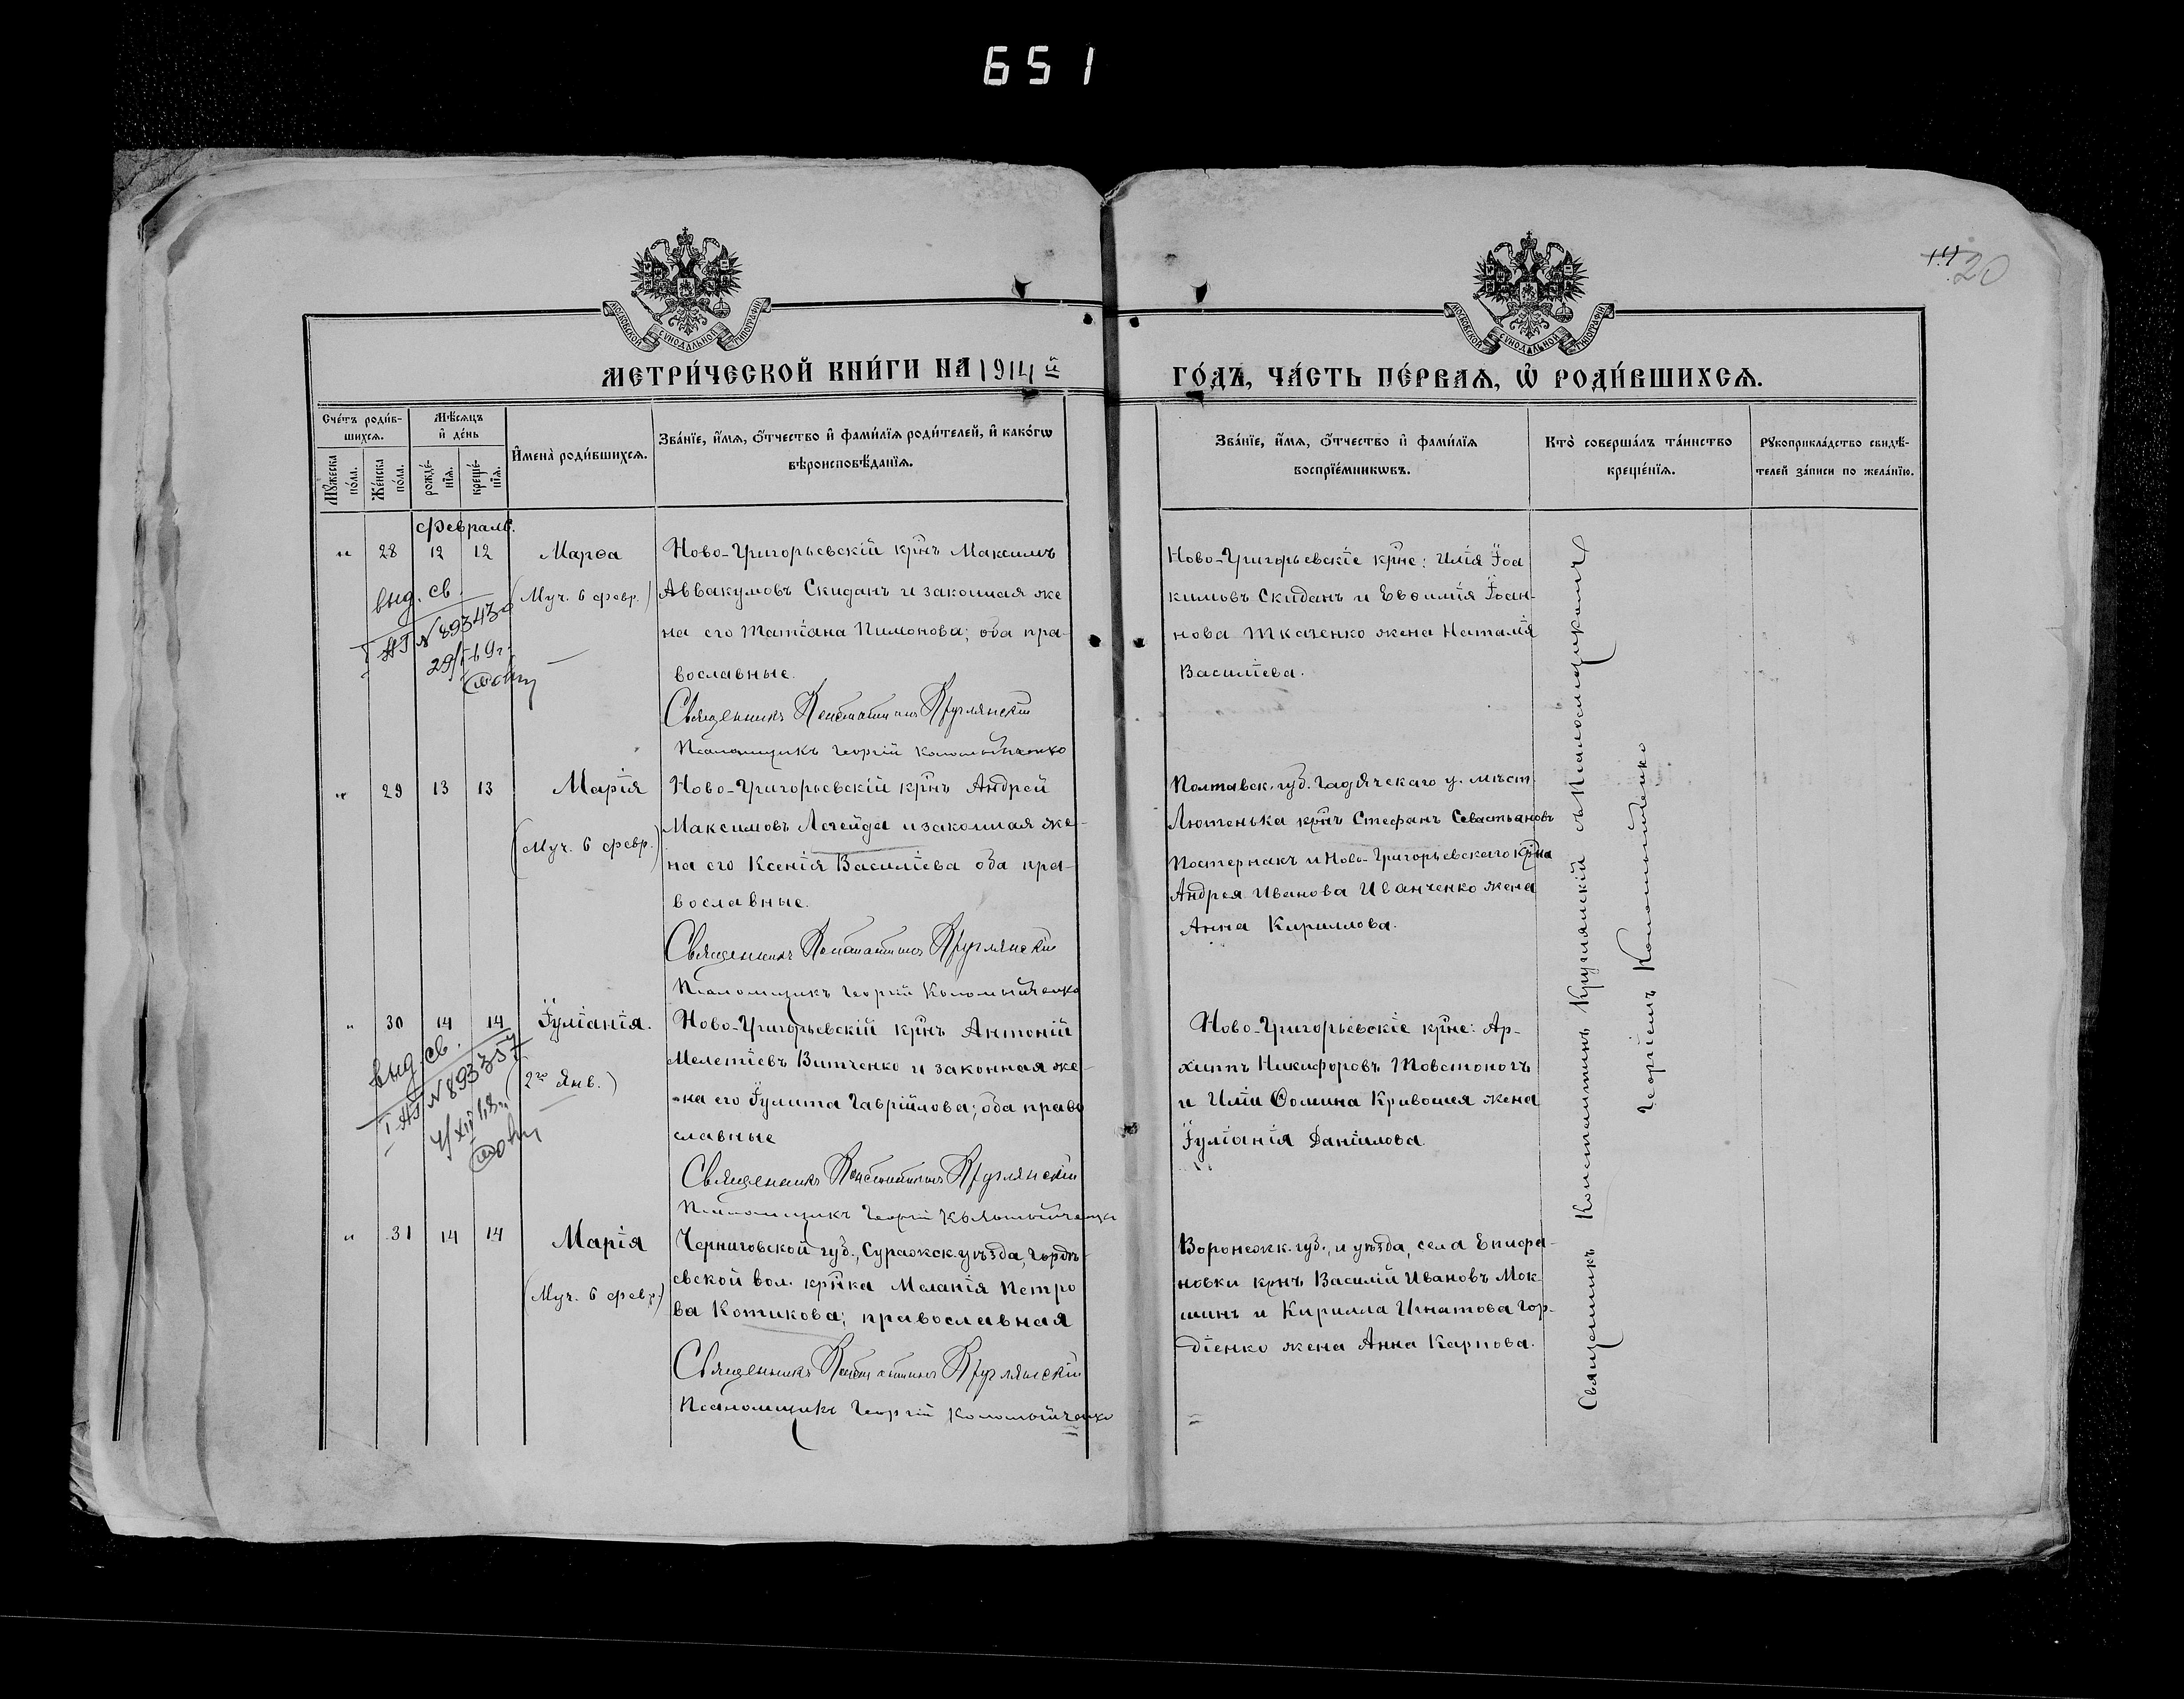 651
14 20
МОСКОВСКОЙ СѴНОДАЛЬНОЙ ТИПОГРАФІИ
МОСКОВСКОЙ СѴНОДАЛЬНОЙ ТИПОГРАФІИ
МЕТРИ́ЧЕСКОЙ КНИ́ГИ НА 1914 й
ГО́ДЪ, ЧА́СТЬ ПЕ́РВАѦ, Ѡ҆ РОДИ́ВШИХСѦ.
Сче́тъ роди́в-
шихсѧ.
Мꙋ́жеска
по́ла.
Же́нска
по́ла.
Мѣ́сѧцъ
и҆ де́нь
рожде́-
нїѧ.
креще́-
нїѧ.
И҆мена̀ роди́вшихсѧ.
Зва́нїе, и҆́мѧ, ѻ҆́тчество и҆ фами́лїѧ роди́телей, и҆ како́гѡ
вѣроисповѣ́данїѧ.
Зва́нїе, и҆́мѧ, ѻ҆́тчество и҆ фами́лїѧ
воспрїе́мникѡвъ.
Кто̀ соверша́лъ та́инство
креще́нїѧ.
Рꙋкоприкла́дство свидѣ́-
телей за́писи по жела́нїю.
Февраль.
" 28 12 12 Марѳа
(Муч. 6 февр.)
выд. св.
I АЛ № 893430
Ново-Григорьевскій кр̃нъ Максимъ
Аввакумовъ Скиданъ и законная же
на его Татіана Пимонова; оба пра-
вославные.
Священникъ Константинъ Круглянскій
Псаломщикъ Георгій Коломыйченко
Ново-Григорьевскіе кр̃не: Илія Іоа
кимовъ Скиданъ и Евѳимія Іоан-
нова Ткаченко жена Наталія
Василіева.
" 29 13 13 Марія
(Муч. 6 февр.)
Ново-Григорьевскій кр̃нъ Андрей
Максимовъ Легейда и законная же-
на его Ксенія Василіева оба пра-
вославные.
Священникъ Константинъ Круглянскій
Псаломщикъ Георгій Коломыйченко
Полтавск. губ. Гадячскаго у. мѣст.
Лютенька кр̃нъ Стефанъ Севастьяновъ
Постернакъ и Ново-Григорьевскаго кр̃на
Андрея Иванова Иванченко жена
Анна Кириллова.
" 30 14 14 Іуліанія.
(2го Янв.)
выд. св.
I АЛ № 893357
Ново-Григорьевскій кр̃нъ Антоній
Мелетіевъ Витченко и законная же-
на его Іулита Гавріилова; оба право
славные
Священникъ Константинъ Круглянскій
Псаломщикъ Георгій Коломыйченко
Ново-Григорьевскіе кр̃не: Ар-
хиппъ Никифоровъ Товстоногъ
и Иліи Ѳомина Кривошея жена
Іуліанія Даніилова
" 31 14 14 Марія
(Муч. 6 февр.)
Черниговской губ., Суражск. уѣзда, Гордѣ-
евской вол. кр̃нка Меланія Петро
ва Котикова; православная
Священникъ Константинъ Круглянскій
Псаломщикъ Георгій Коломыйченко
Воронежк. губ., и уѣзда, села Епифа-
новки кр̃нъ Василій Ивановъ Мок-
шинъ и Кирилла Игнатова Гор-
діенко жена Анна Карпова.
Священникъ Константинъ Круглянскій съ Псаломщикомъ
Георгіемъ Коломыйченко